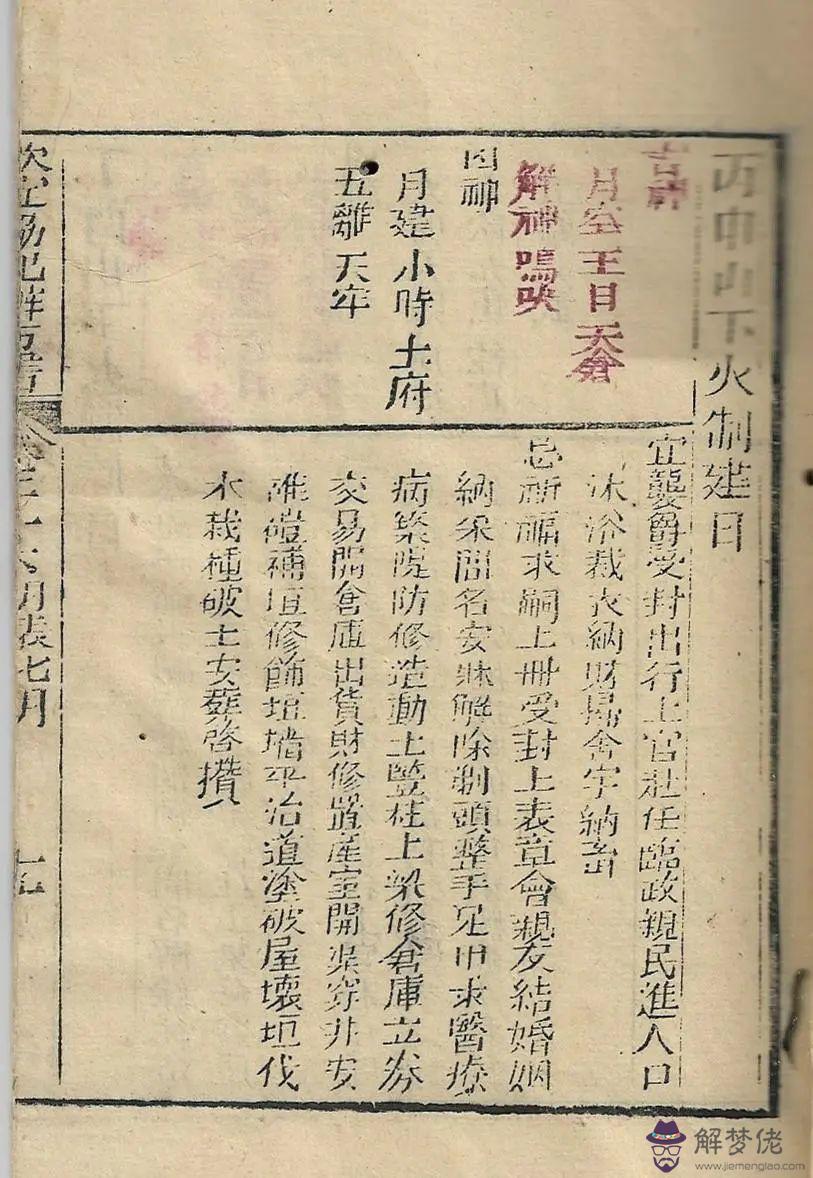 丙申山下火制建日
吉神
月空 王日 天倉
解神 鳴吠
凶神
月建 小時 土府
五離 天牢
宜襲爵受封出行上官赴任臨政親民進人口
沐浴裁衣納財掃舍宇納畜
忌祈福求嗣上冊受封上表章會親友結婚姻
納采問名安牀解除剃頭整手足甲求醫療
病築隄防修造動土竪柱上梁修倉庫立券
交易開倉庫出貨財修置產室開渠穿井安
碓磑補垣修飾垣墻平治道塗破屋壞垣伐
木栽種破土安葬啓攢
月表七月
解梦佬
www.jiemenglao.com